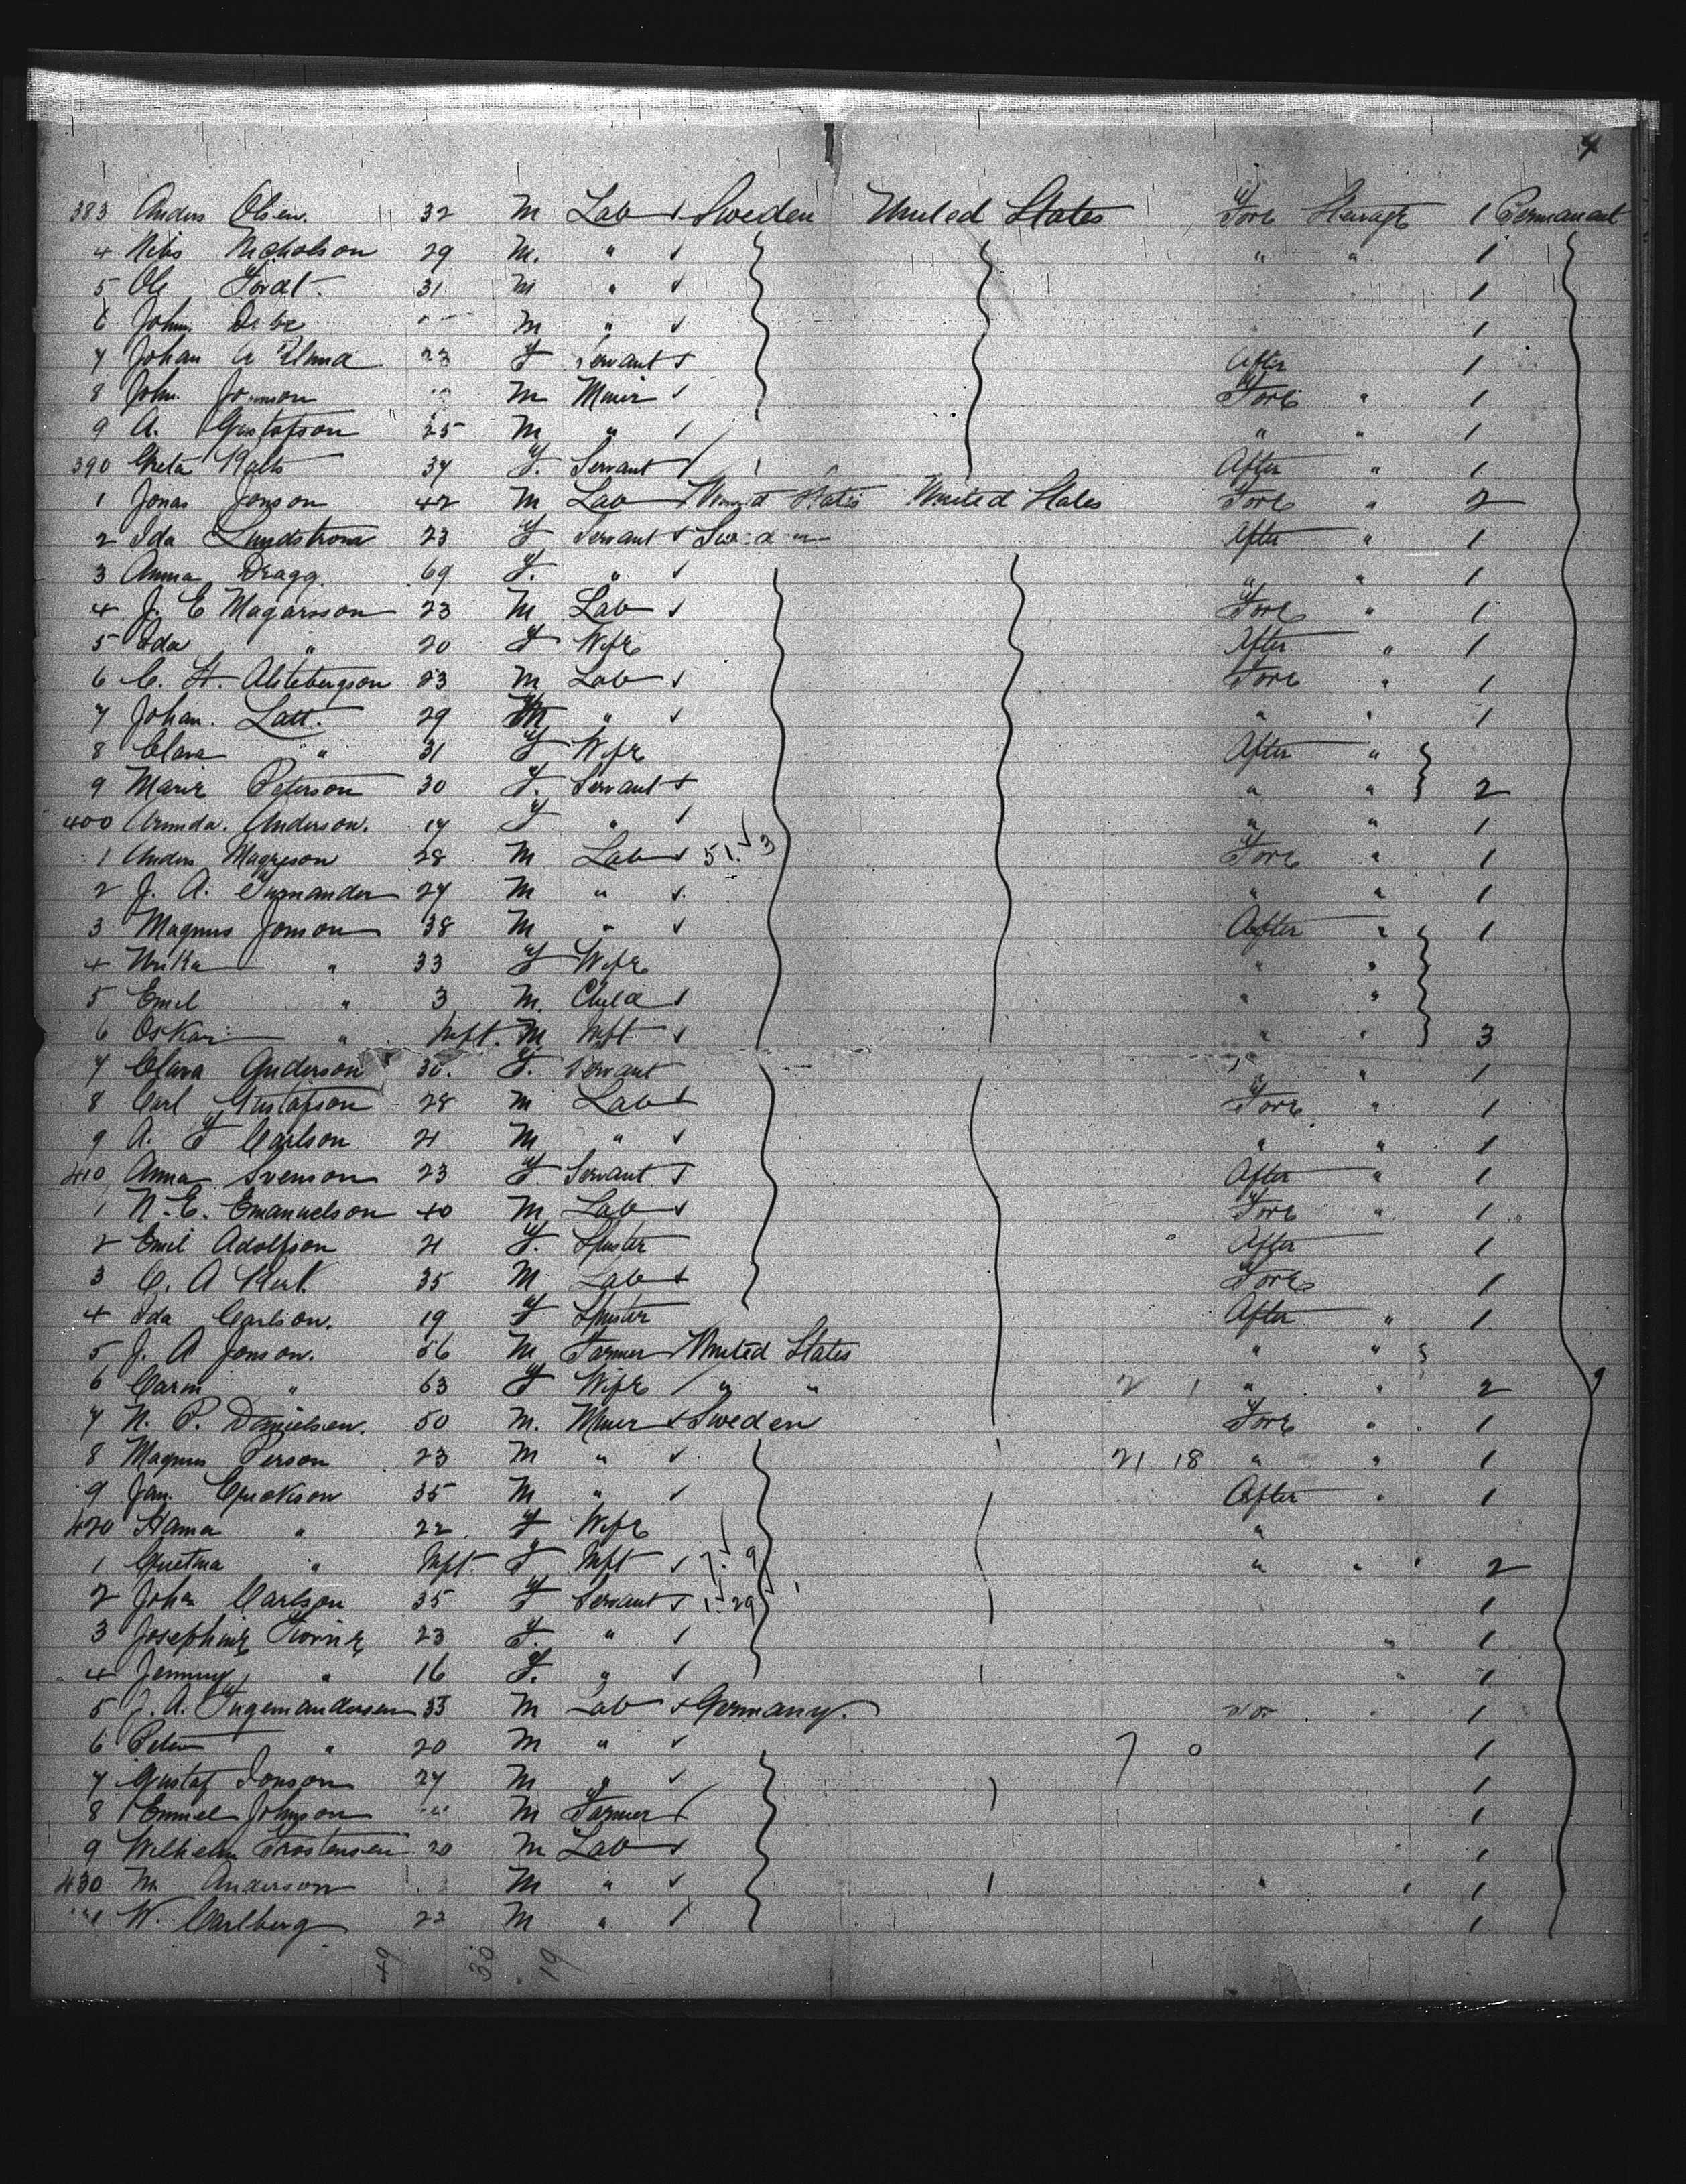 4
383 Anders Olsen. 32 M Lab Sweden United States Fore Steerage 1 Permanant
4 Nils Nicholson 29 M. " " " 1
5 Ole 31 M " 1
6 John M " 1
7 Johan 23 F Servant After 1
8 John M Miner Fore " 1
9 A. Gustafson 25 M " " " 1
390 Greta 34 F. Servant After " 1
1 Jonas Jonson 42 M Lab United States United States Fore " 2
2 Ida Lundstrom 23 F Servant Sweden After " 1
3 Anna Dragg. 69 F. " " " 1
4 J. E Magarsson 23 M Lab Fore " 1
5 Ida " 20 F Wife After " 1
6 C. H. 23 M Lab Fore " 1
7 Johan. Latt. 29 M " " " 1
8 Clara " 31 F Wife After "
9 Marie Peterson 30 F. Servant " " 2
400 Anderson. 17 F " " " 1
1 Anders Magreson 28 M Lab 51. 3 Fore " 1
2 J. A. 27 M " " " 1
3 Magnus Jonson 38 M " After " 1
4 " 33 F Wife " "
5 Emil " 3 M. Child " "
6 Oskar " Inft. M. Inft " " 3
7 Clara Anderson 30. F. Servant " " 1
8 Carl Gustafson 28 M Lab Fore " 1
9 A. F Carlson 21 M " " " 1
410 Anna Svenson 23 F Servant After " 1
1 N. E. Emanuelson 40 M Lab Fore " 1
2 Emil Adolfson 21 F. Spinster After 1
3 C. A 35 M Lab Fore 1
4 Ida Carlson. 19 F Spinster After " 1
5 J. A Jonson. 56 M Farmer United States " "
6 Carin " 63 F Wife " " 2 1 " " 2
7 N. P. Danielsen. 50 M. Miner Sweden Fore " 1
8 Magnus Person 23 M " 21 18 " " 1
9 Jan. Erickson 35 M " After " 1
420 Hama " 22 F Wife "
1 " Inft. F Inft 7. 9 " " 2
2 Johan Carlson 35 F Servant 1. 29 1
3 Josephine 23 F. " " 1
4 Jenny " 16 F. " " 1
5 J. A. Ingemandersen 33 M Lab Germany. " 1
6 Peter " 20 M " 7 0 1
7 Gustaf Jonson 27 M " 1
8 Emmel Johnson M Farmer 1
9 Wilhelm Trostensen 20 M Lab 1
430 Anderson M " " 1
W. Carlberg 22 M " 1
49 30 19